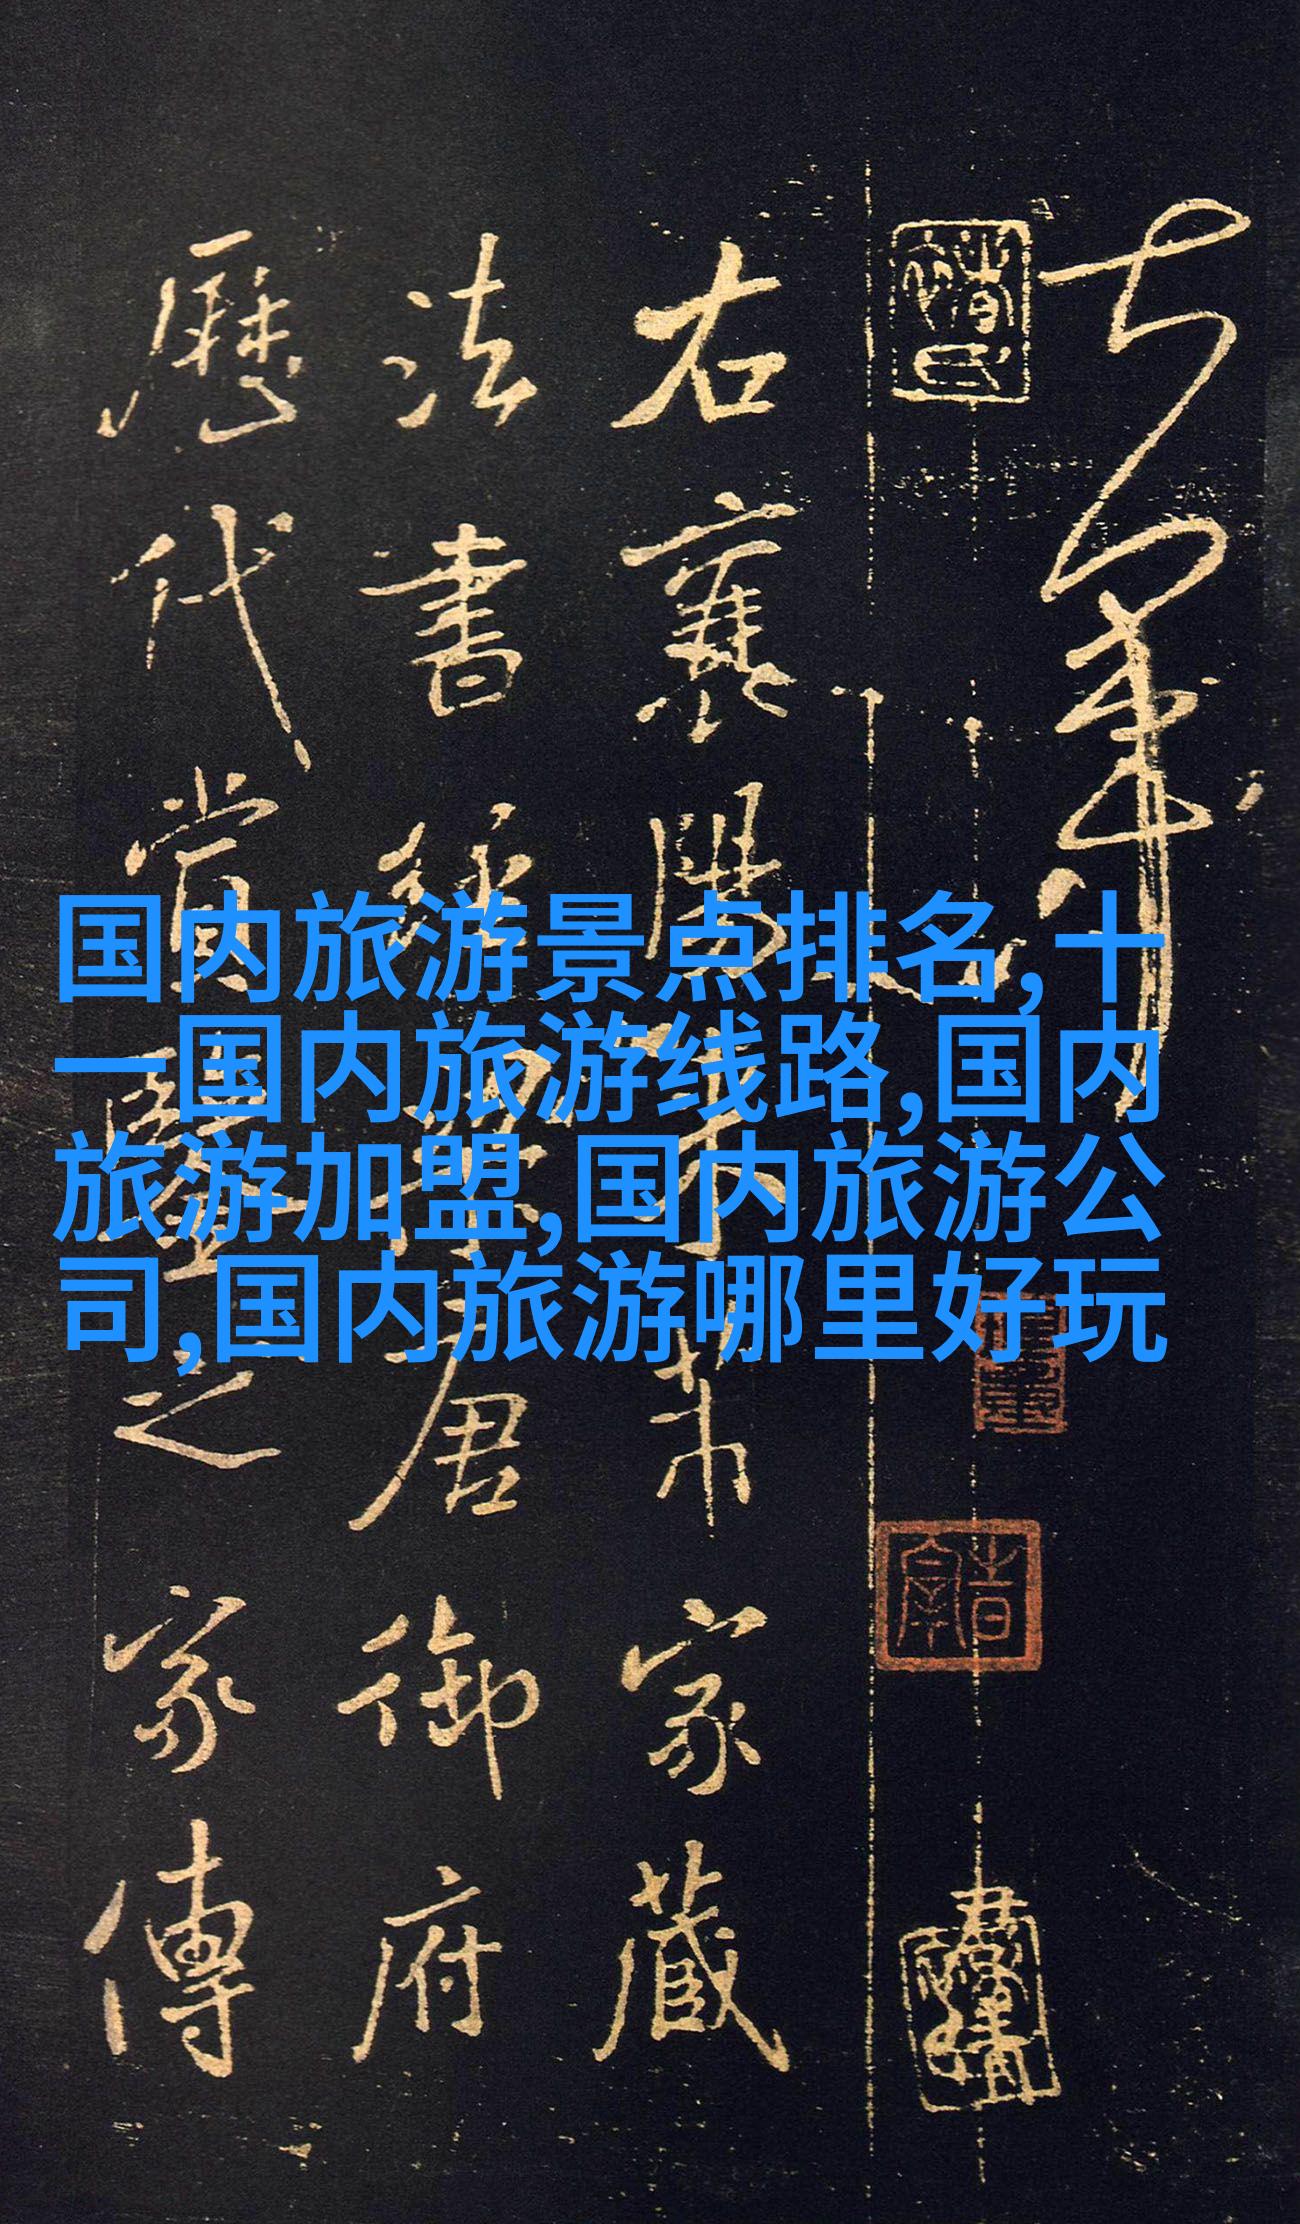 国内旅游景点排名,十
一国内旅游线路,国内
旅游加盟,国内旅游公
司,国内旅游哪里好玩
右襄陽米芾家藏
法書經梁唐御府
歷代賞鑒之家傳